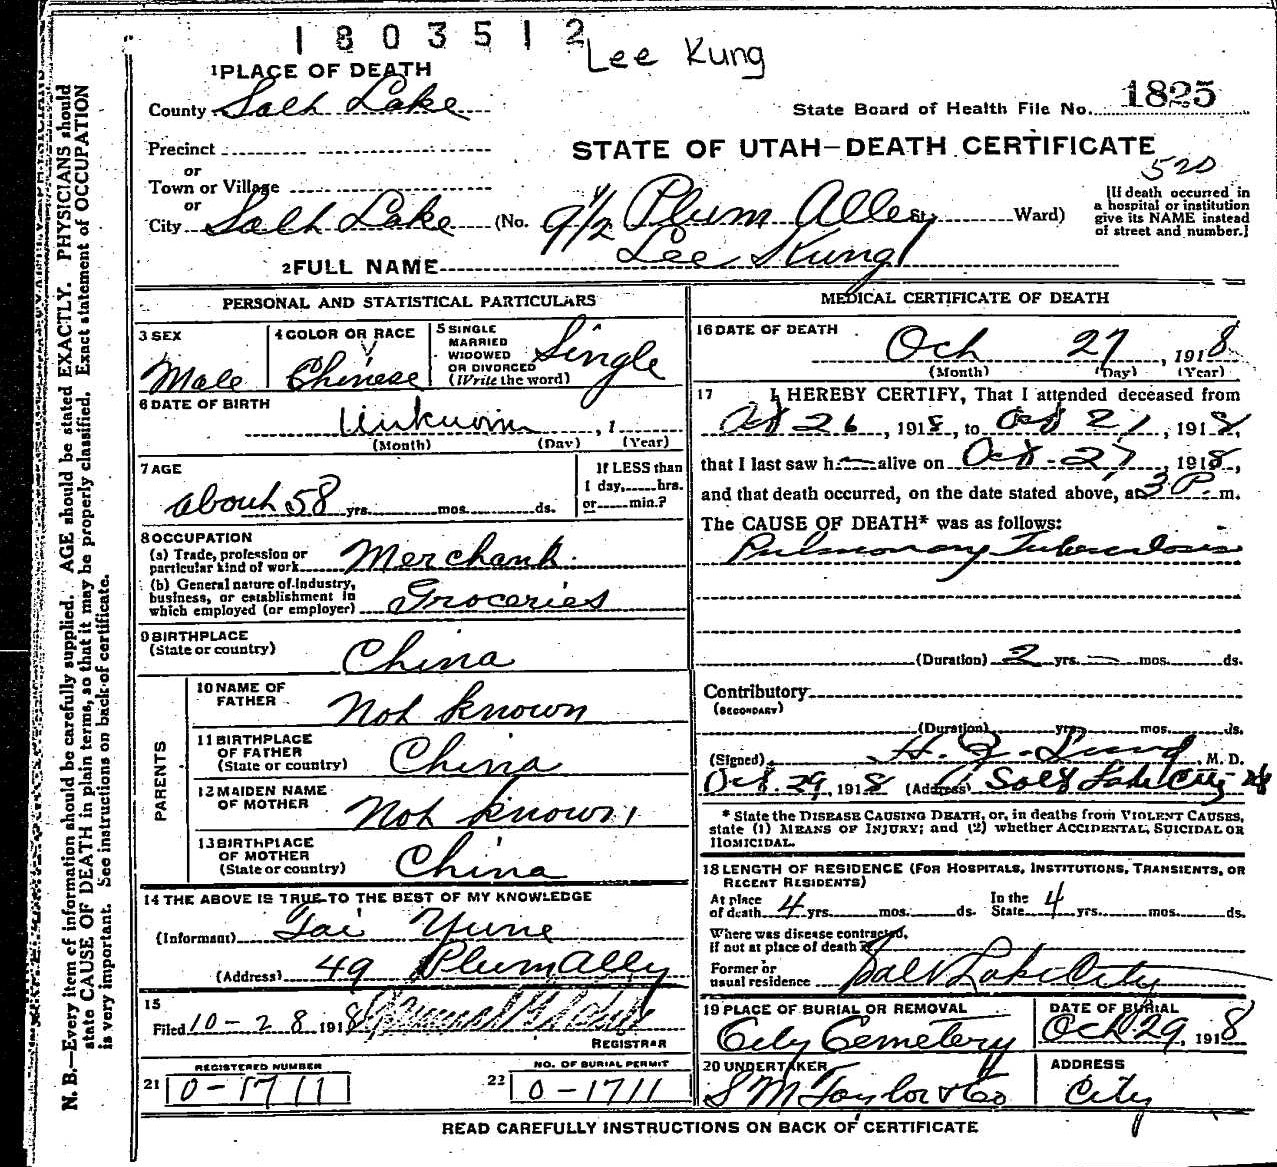 1803512
Lee Kung
1 PLACE OF DEATH
County Salt Lake
State Board of Health File No. 1825
Precinct
or
Town or Village
or
City Salt Lake (No. 9 1/2 Plum Alley St. Ward)
STATE OF UTAH—DEATH CERTIFICATE
520
[If death occurred in
a hospital or institution
give its NAME instead
of street and number.]
2 FULL NAME Lee Kung
PERSONAL AND STATISTICAL PARTICULARS
3 SEX
Male
4 COLOR OR RACE
Chinese
5 SINGLE
MARRIED
WIDOWED
OR DIVORCED
(Write the word)
Single
6 DATE OF BIRTH
Unknown, 1
(Month) (Day) (Year)
7 AGE
about 58 yrs. mos. ds.
If LESS than
1 day, hrs.
or min.?
8 OCCUPATION
(a) Trade, profession or
particular kind of work Merchant.
(b) General nature of Industry,
business, or establishment in
which employed (or employer) Groceries
9 BIRTHPLACE
(State or country)
China
PARENTS
10 NAME OF
FATHER
Not known
11 BIRTHPLACE
OF FATHER
(State or country)
China
12 MAIDEN NAME
OF MOTHER
Not known
13 BIRTHPLACE
OF MOTHER
(State or country)
China
14 THE ABOVE IS TRUE TO THE BEST OF MY KNOWLEDGE
(Informant) Tai Yune
(Address) 49 Plum Alley
15
Filed 10-28 1918
REGISTRAR
REGISTERED NUMBER
21 0-1711
NO. OF BURIAL PERMIT
22 0-1711
MEDICAL CERTIFICATE OF DEATH
16 DATE OF DEATH
Oct 27, 1918
(Month) (Day) (Year)
17 I HEREBY CERTIFY, That I attended deceased from
Oct 26, 1918, to Oct 27, 1918,
that I last saw h alive on Oct-27, 1918,
and that death occurred, on the date stated above, at 3 P. m.
The CAUSE OF DEATH* was as follows:
Pulmonary Tuberculosis
(Duration) 2 yrs. mos. ds.
Contributory
(SECONDARY)
(Duration) yrs. mos. ds.
(Signed) M. D.
Oct. 29, 1918 (Address) Salt Lake City
* State the DISEASE CAUSING DEATH, or, in deaths from VIOLENT CAUSES,
state (1) MEANS OF INJURY; and (2) whether ACCIDENTAL, SUICIDAL OR
HOMICIDAL.
18 LENGTH OF RESIDENCE (FOR HOSPITALS, INSTITUTIONS, TRANSIENTS, OR
RECENT RESIDENTS)
At place
of death 4 yrs. mos. ds.
In the
State 4 yrs. mos. ds.
Where was disease contracted,
if not at place of death?
Former or
usual residence Salt Lake City
19 PLACE OF BURIAL OR REMOVAL
City Cemetery
DATE OF BURIAL
Oct 29, 1918
20 UNDERTAKER
S M Taylor & Co
ADDRESS
City
READ CAREFULLY INSTRUCTIONS ON BACK OF CERTIFICATE
N. B.—Every item of information should be carefully supplied. AGE should be stated EXACTLY. PHYSICIANS should
state CAUSE OF DEATH in plain terms, so that it may be properly classified. Exact statement of OCCUPATION
is very important. See instructions on back of certificate.